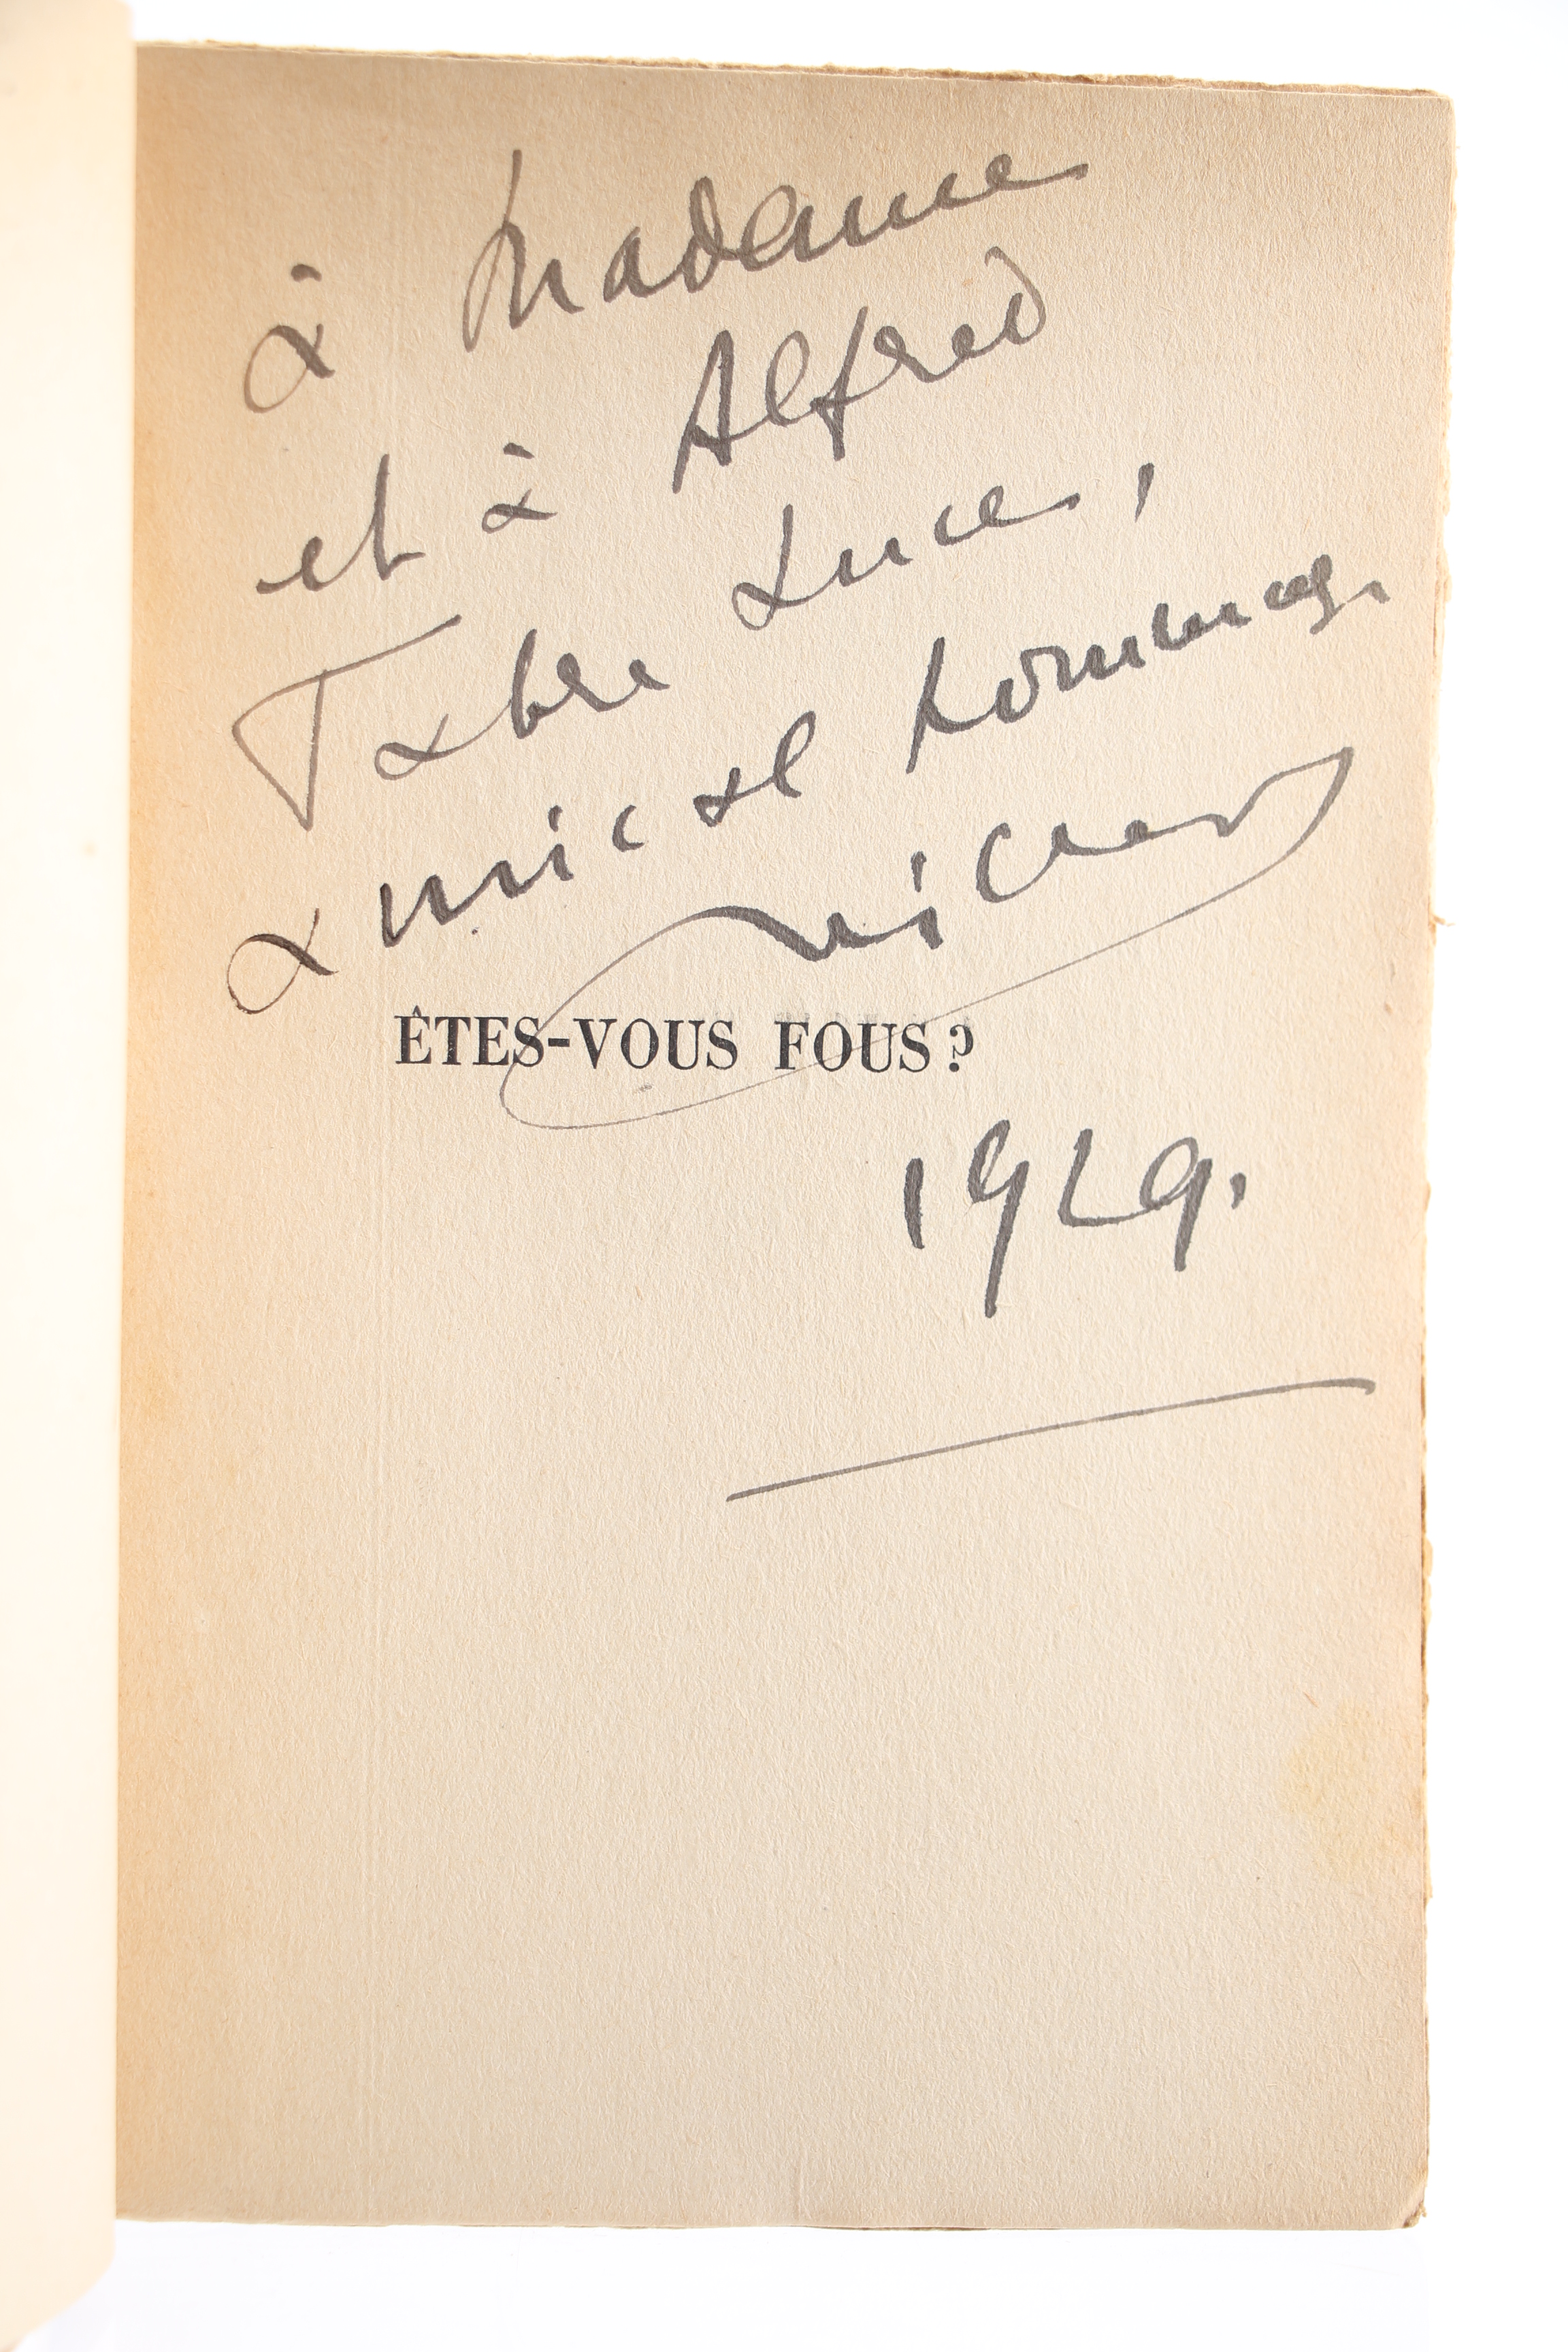 à Madame
et à Alfred
Fabre Luce,
amical hommage
Crevel
ÊTES-VOUS FOUS ?
1929.